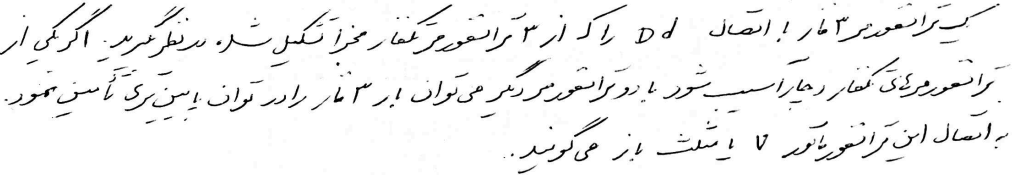 یک ترانسفورمر ۳ فاز با اتصال Dd را که از ۳ ترانسفورمر تکفاز مجزا تشکیل شده در نظر بگیرید. اگر یکی از
ترانسفورمرهای تکفاز دچار آسیب شود با دو ترانسفورمر دیگر می‌توان بار ۳ فاز را در توان پایین‌تری تأمین نمود.
به اتصال این ترانسفورماتور V یا مثلث باز می‌گویند.